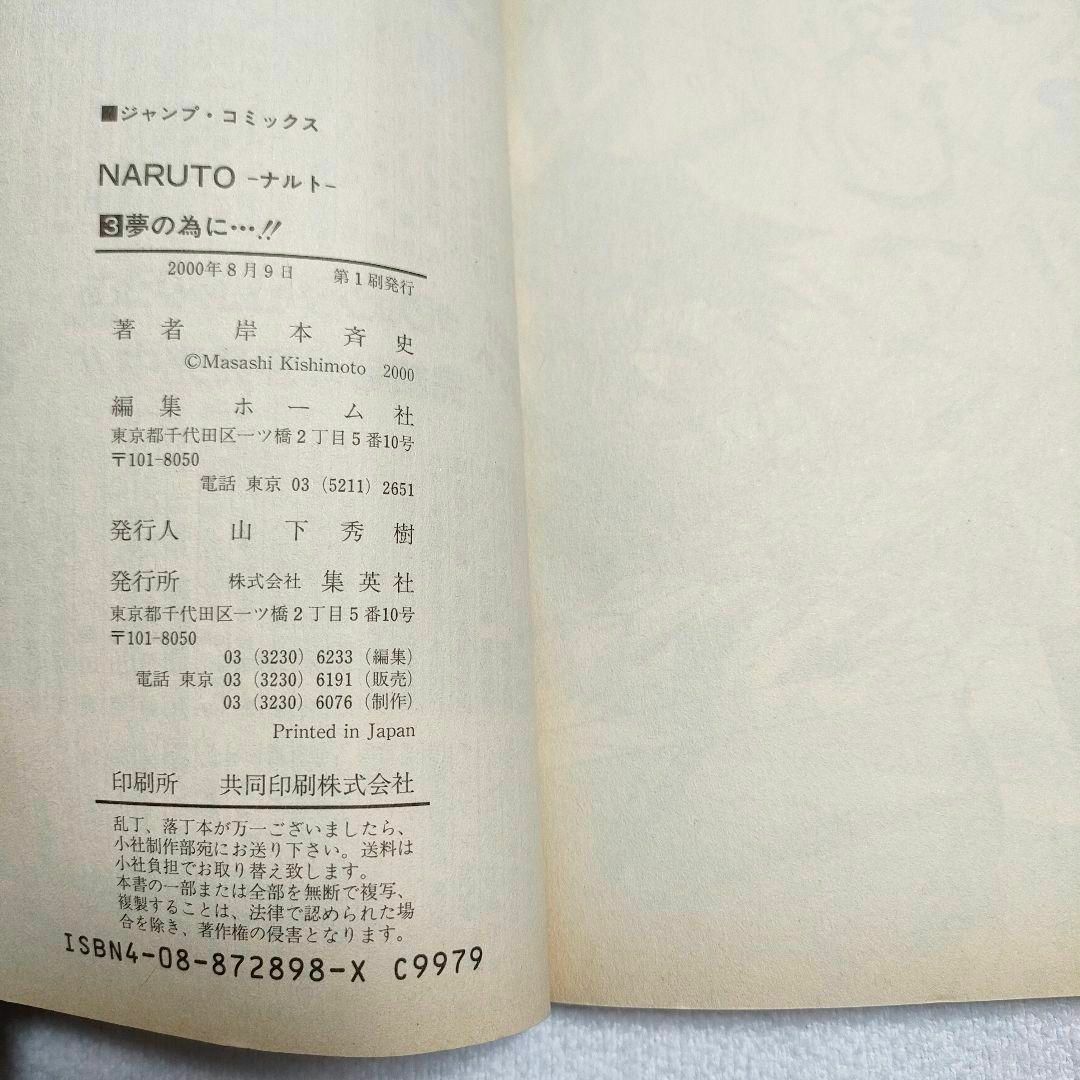 ■ジャンプ・コミックス
NARUTO -ナルト-
3夢の為に…!!
2000年8月9日 第1刷発行
著者 岸本斉史
©Masashi Kishimoto 2000
編集 ホーム社
東京都千代田区一ツ橋2丁目5番10号
〒101-8050
電話 東京 03 (5211) 2651
発行人 山下秀樹
発行所 株式会社 集英社
東京都千代田区一ツ橋2丁目5番10号
〒101-8050
03 (3230) 6233 (編集)
電話 東京 03 (3230) 6191 (販売)
03 (3230) 6076 (制作)
Printed in Japan
印刷所 共同印刷株式会社
乱丁、落丁本が万一ございましたら、
小社制作部宛にお送り下さい。送料は
小社負担でお取り替え致します。
本書の一部または全部を無断で複写、
複製することは、法律で認められた場
合を除き、著作権の侵害となります。
ISBN4-08-872898-X C9979